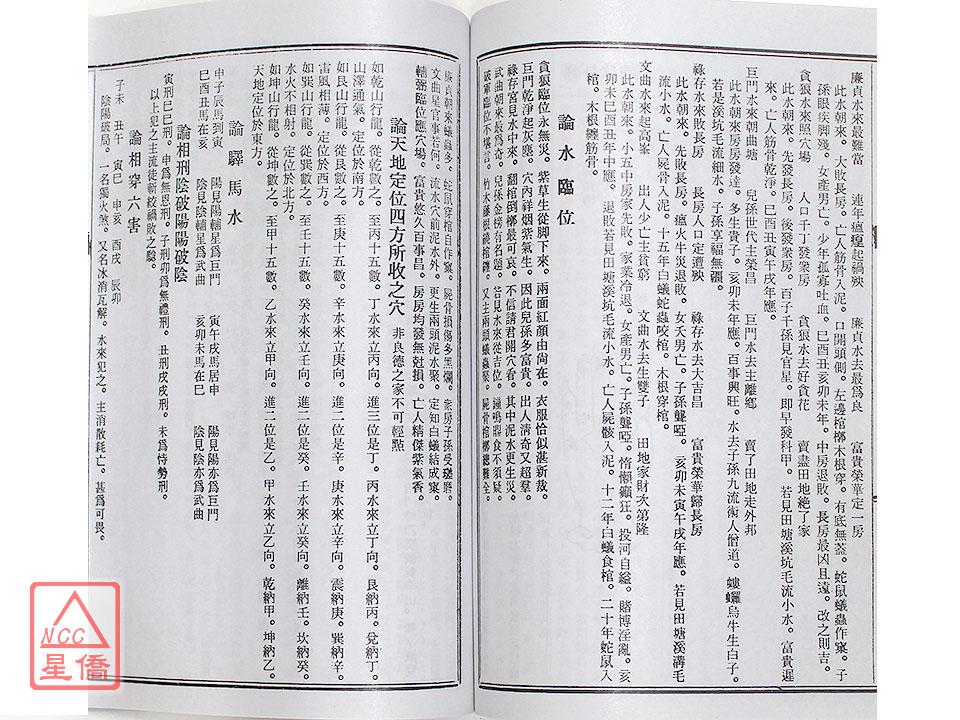 廉貞水來最難當 連年瘟㾮起禍殃 廉貞水去最為良 富貴榮華定一房
此水朝來。大敗長房。亡人筋骨入泥。口開頭側。左邊棺槨木根穿。有底無蓋。蛇鼠蟻蟲作窠。子
孫眼疾腳殘。女產男亡。少年孤寡吐血。巳酉丑亥卯未年。中房退敗。長房最凶且遠。改之則吉。
貪狼水來照穴場 人口千丁發眾房 貪狼水去好貪花 賣盡田地絕了家
此水朝來。先發長房。後發眾房。百子千孫見官星。即早發科甲。若見田塘溪坑毛流小水。富貴遲
來。亡人筋骨乾淨。巳酉丑寅午戌年應。
巨門水來朝曲塘 兒孫世代主榮昌 巨門水去主離鄉 賣了田地走外邦
此水朝來房房發達。多生貴子。亥卯未年應。百事興旺。水去子孫九流術人僧道。螟蠃烏牛生白子。
若是溪坑毛流細水。子孫享福無疆。
祿存水來敗長房 長房人口定遭殃 祿存水去大吉昌 富貴榮華歸長房
此水朝來。先敗長房。瘟火牛災退敗。女夭男亡。子孫聾啞。亥卯未寅午戌年應。若見田塘溪溝毛
流小水。亡人屍骨入泥。十五年白蟻蛇蟲咬棺。木根穿棺。
文曲水來起高峯 出人少亡主貧窮 文曲水去生雙子 田地家財次第隆
此水朝來。小五中房家先敗。家業冷退。女產男亡。子孫聾啞。惰懶癲狂。投河自縊。賭博淫亂。亥
卯未巳酉丑年中應。退敗若見田塘溪坑毛流小水。亡人屍骸入泥。十二年白蟻食棺。二十年蛇鼠入
棺。木根纏筋骨。
論水臨位
貪狼臨位永無災。紫草生從脚下來。兩面紅顏由尚在。衣服恰似湛新裁。
巨門乾淨起灰塵。穴內祥烟紫氣生。因此兒孫多富貴。出人清奇又超羣。
祿存宮見水中來。翻棺倒槨最可哀。不信請君開穴看。其中泥水更生災。
武曲朝來最為奇。兒孫金榜有名題。若見水來從吉位。鐘鳴鼎食不須疑。
破軍臨位不堪言。竹木籐根繞棺纏。又主兩頭蟻蟲聚。屍骨棺槨總難全。
廉貞朝來亦蟻蟲多。蛇鼠穿棺自作窠。屍骨損傷多黑爛。
文曲星官事若何。流水穴前泥水外。更生兩頭泥水聚。定知白蟻結成窠。
輔弼臨位應穴場。富貴悠久百事昌。房房均發無尅損。亡人精傑紫氣香。
論天地定位四方所收之穴 非良德之家不可輕㸃
如乾山行龍。從乾數之。至丙十五數。丁水來立丙向。進三位是丁。丙水來立丁向。艮納丙。兌納丁。
山澤通氣。定位於南方。
如艮山行龍。從艮數之。至庚十五數。辛水來立庚向。進二位是辛。庚水來立辛向。震納庚。巽納辛。
雷風相薄。定位於西方。
如巽山行龍。從巽數之。至壬十五數。癸水來立壬向。進二位是癸。壬水來立癸向。離納壬。坎納癸。
水火不相射。定位於北方。
如坤山行龍。從坤數之。至甲十五數。乙水來立甲向。進二位是乙。甲水來立乙向。乾納甲。坤納乙。
天地定位於東方。
論驛馬水
申子辰馬到寅 陽見陽輔星為巨門 寅午戌馬居申 陽見陽亦為巨門
巳酉丑馬在亥 陰見陰輔星為武曲 亥卯未馬在巳 陰見陰亦為武曲
論相刑陰破陽陽破陰
寅刑巳巳刑。申為無恩刑。子刑卯為無禮刑。丑刑戌戌刑。未為恃勢刑。
以上犯之主流徒斬絞禍敗之驗。
論相穿六害
子未 丑午 寅巳 申亥 酉戌 辰卯
陰陽破局。一名獨火煞。又名冰消瓦解。水來犯之。主消散耗亡。甚為可畏。
NCC
星僑